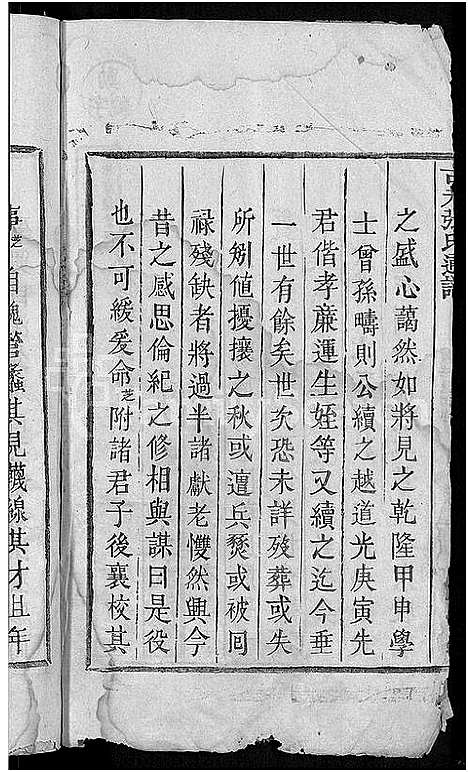 之盛心藹然如將見之乾隆甲申學
士曾孫疇則公續之越道光庚寅先
君偕孝亷運生姪等又續之迄今垂
一世有餘矣世次恐未詳歿葬或失
所矧値擾攘之秋或遭兵燹或被回
祿殘缺者將過半諸獻老戄然興今
昔之感思倫紀之修相與謀曰是役
也不可緩爰命芝附諸君子後襄校其
事芝自愧管蠡其見襪線其才且年